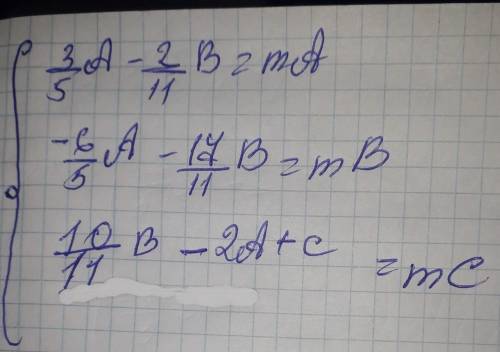 3/5 A - 2/11 B = mA
-6/5 A - 17/11 B = mB
10/11 B - 2A + c = mC